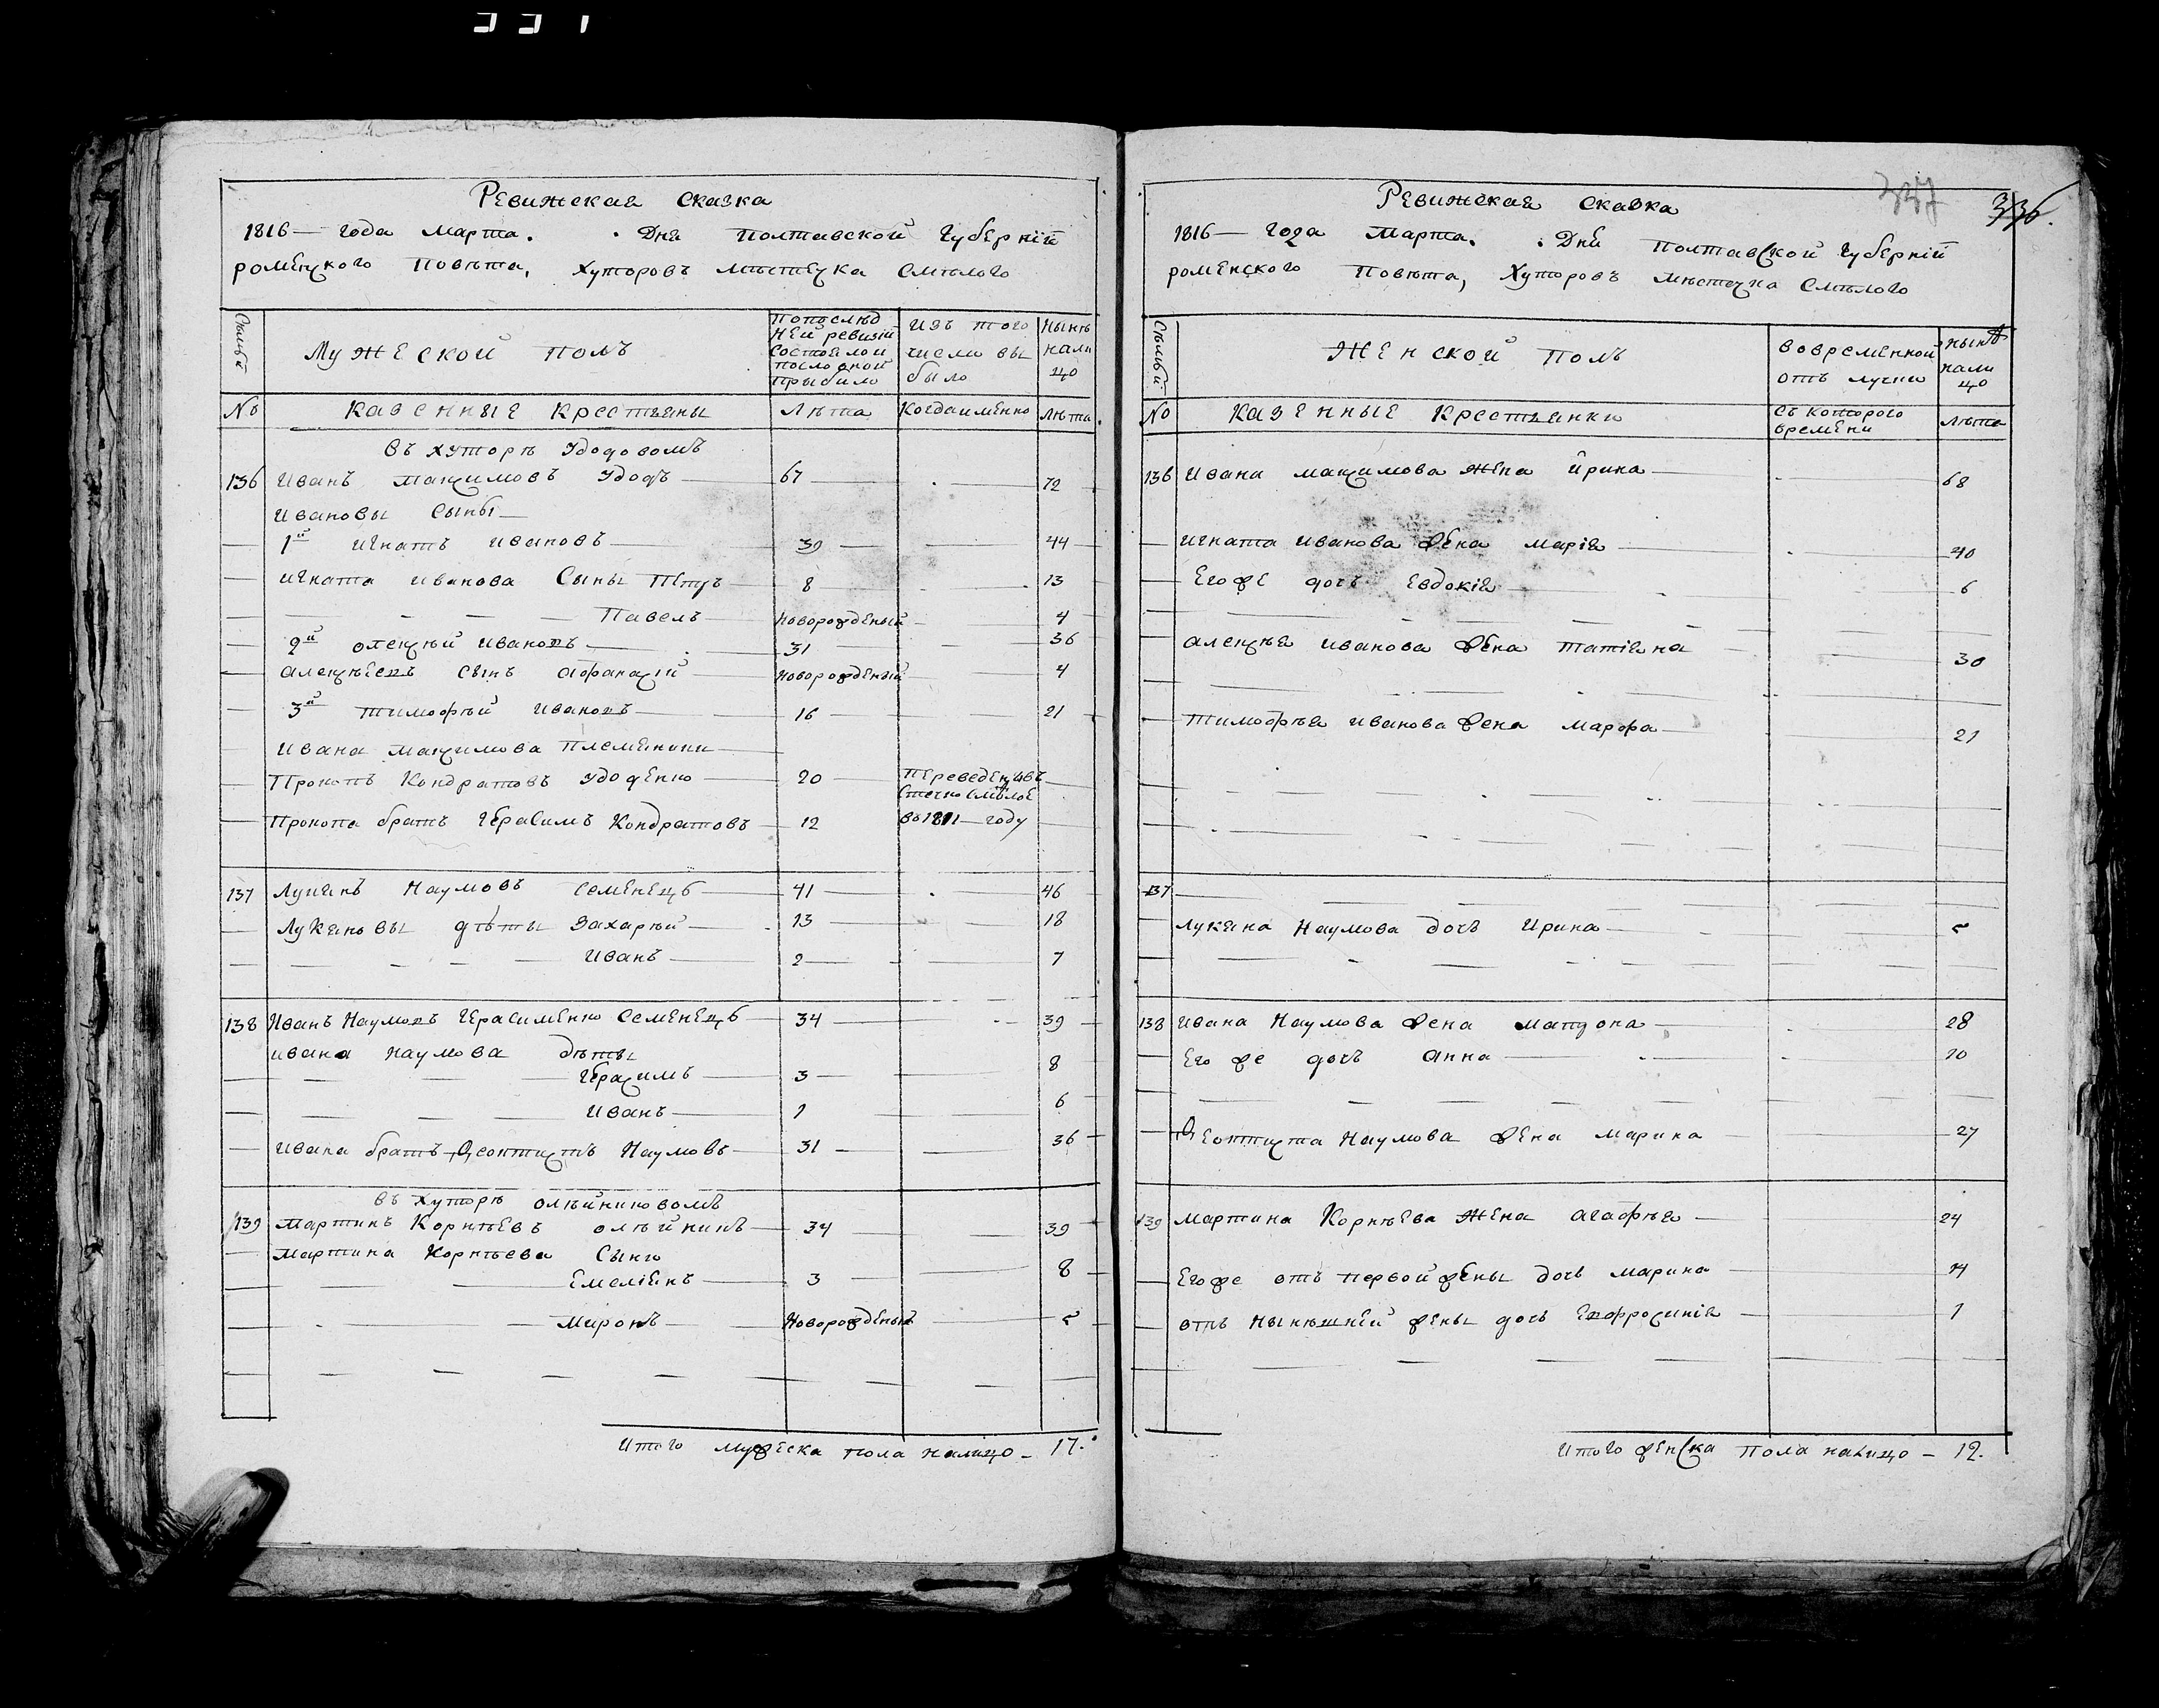 331
Ревижская сказка
1816 — года марта. . Дня Полтавской Губерній
роменского Повѣта, Хуторовъ мѣстечка Смѣлого
Мужеской полъ
по послѣд
ней ревизіи
состояло и
после оной
прибыло
изъ того
числа вы
было
нынѣ
нали
цо
№ казенные крестьяны Лѣта Когда именно лѣта
въ хуторѣ Удодовомъ
136 Иванъ максимовъ Удодъ — 67 — 72
Ивановы сыны —
1й игнатъ ивановъ — 39 — 44
игната иванова Сыны Петръ — 8 — 13
Павелъ — новорожденый — 4
2й олексѣй ивановъ — 31 — 36
алексѣевъ сынъ афанасій — новорожденый 4
3й тимофѣй ивановъ — 16 — 21
ивана максимова племеники —
Прокопъ Кондратовъ Удоденко — 20 — переведен
Прокопа братъ Герасимъ Кондратовъ — 12 въ 1811 — году
137 Лукянъ Наумовъ семенецъ — 41 — 46
Лукяновы дѣты Захарѣй — 13 — 18
иванъ — 2 — 7
138 Иванъ Наумовъ Герасименко семенецъ — 34 — 39
ивана наумова дѣты
Герасимъ — 3 — 8
иванъ — 1 6
ивана братъ Феоктистъ Наумовъ — 31 — 36
въ хуторѣ олѣйниковомъ
139 мартинъ Корнѣевъ олѣйникъ — 34 39
мартина Корнѣева Сыны
Емеліянъ — 3 — 8
миронъ — Новорожденый 5
Итого мужеска пола налицо — 17.
337
336.
Ревижская сказка
1816 — года марта. . Дня Полтавской Губерній
роменского Повѣта, Хуторовъ мѣстечка Смѣлого
Женской полъ
вовременной
отъ лучки
нынѣ
нали
цо
№ казенные крестьянки
съ которого
времени
лѣта
136 ивана максимова жена ирина — 68
игната иванова жена марія — 40
его же дочъ евдокія — 6
алексѣя иванова жена татіяна 30
тимофѣя иванова жена марфа — 21
137
лукяна наумова дочъ ирина — 5
138 ивана наумова жена мапдона — 28
его же дочъ анна — 10
Феоктиста наумова жена марина 27
139 мартина Корнѣева жена агафѣя — 24
его же отъ первой жены дочъ марина 14
отъ нынѣшней жены дочъ Евфросинія — 1
Итого женска пола налицо — 12.